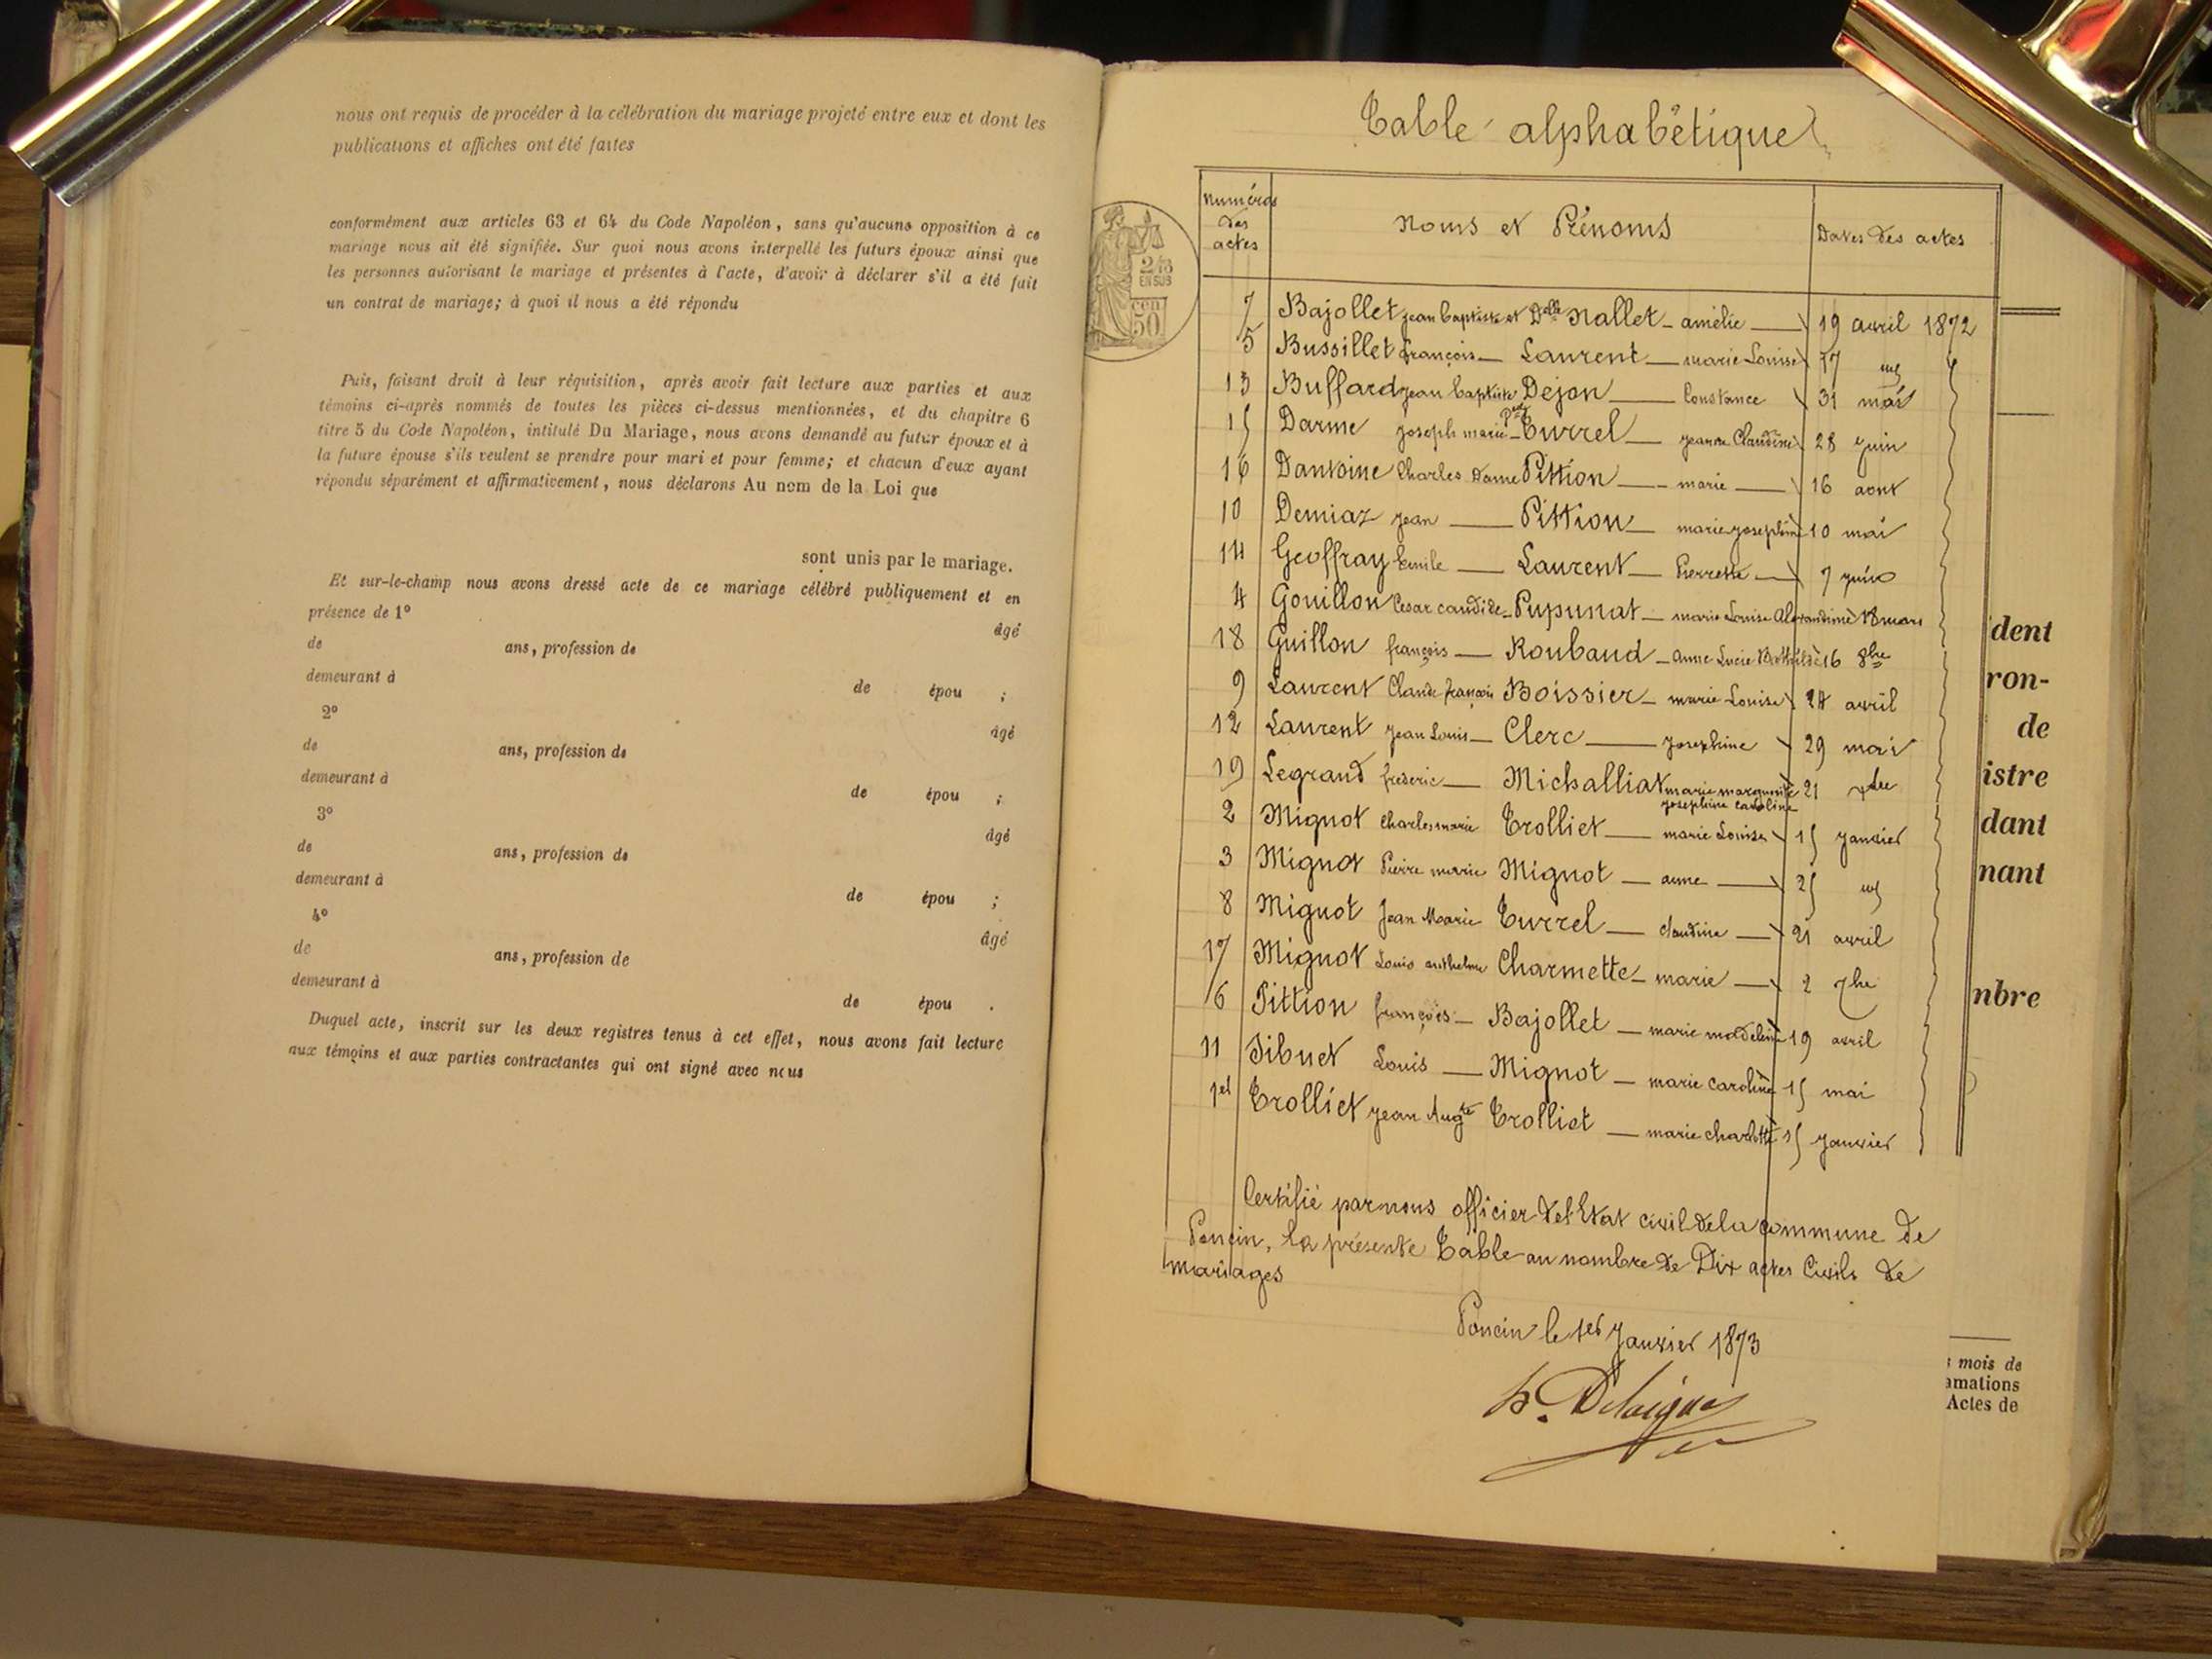 nous ont requis de procéder à la célébration du mariage projeté entre eux et dont les
publications et affiches ont été faites
conformément aux articles 63 et 64 du Code Napoléon, sans qu'aucune opposition à ce
mariage nous ait été signifiée. Sur quoi nous avons interpellé les futurs époux ainsi que
les personnes autorisant le mariage et présentes à l'acte, d'avoir à déclarer s'il a été fait
un contrat de mariage; à quoi il nous a été répondu
Puis, faisant droit à leur réquisition, après avoir fait lecture aux parties et aux
témoins ci-après nommés de toutes les pièces ci-dessus mentionnées, et du chapitre 6
titre 5 du Code Napoléon, intitulé Du Mariage, nous avons demandé au futur époux et à
la future épouse s'ils veulent se prendre pour mari et pour femme; et chacun d'eux ayant
répondu séparément et affirmativement, nous déclarons Au nom de la Loi que
sont unis par le mariage.
Et sur-le-champ nous avons dressé acte de ce mariage célébré publiquement et en
présence de 1° âgé
de ans, profession de
demeurant à de épou ;
2° âgé
de ans, profession de
demeurant à de épou ;
3° âgé
de ans, profession de
demeurant à de épou ;
4° âgé
de ans, profession de
demeurant à de épou .
Duquel acte, inscrit sur les deux registres tenus à cet effet, nous avons fait lecture
aux témoins et aux parties contractantes qui ont signé avec nous
Table alphabétique
Numéros des actes Noms et Prénoms Dates des actes
2/10 EN SUS
50
7 Bajollet jean baptiste et Delle Nallet - amélie — 19 avril 1872
5 Bussillet françois — Laurent — marie Louise 17
13 Buffard jean baptiste Dejon — Constance 31 mai
15 Darme joseph marie Turrel — jeanne Claudine 28 juin
16 Dantoine Charles Dame Pittion — marie — 16 aout
10 Demiaz jean — Pittion — marie josephine 10 mai
14 Geoffray Emile — Laurent — Pierrette — 7 juin
4 Gouillon Cesar candide - Pupunat — marie Louise Alexandrine 18 mars
18 Guillon françois — Roubaud — anne Lucie Bathilde 16 8bre
9 Laurent Claude françois Boissier — marie Louise 24 avril
12 Laurent jean Louis — Clerc — josephine 29 mai
19 Legrand frederic — Michalliat marie marguerite josephine caroline 21
2 Mignot Charles marie Trolliet — marie Louise 15 janvier
3 Mignot Pierre marie Mignot — anne — 25
8 Mignot jean Marie Turrel — claudine — 21 avril
17 Mignot Louis anthelme Charmette — marie — 2 7bre
6 Pittion françois — Bajollet — marie madeleine 19 avril
11 Tibuet Louis — Mignot — marie caroline 15 mai
1er Trolliet jean Augte Trolliet — marie charlotte 15 janvier
Certifié par nous officier del'Etat civil dela commune de
Poncin, la présente Table au nombre de Dix actes Civils de
mariages
Poncin le 1er janvier 1873
dent
ron-
de
istre
dant
nant
nbre
mois de
amations
Actes de